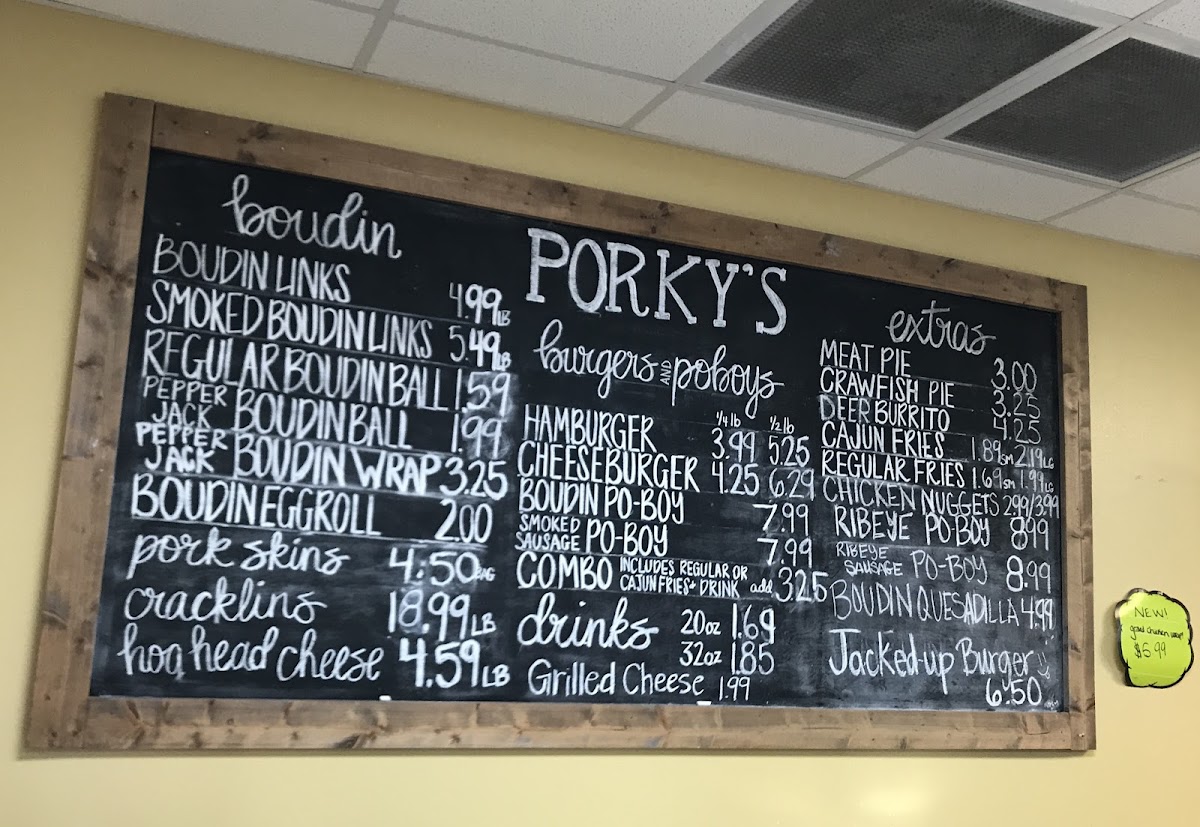 PORKY'S
boudin
BOUDIN LINKS 4.99 LB
SMOKED BOUDIN LINKS 5.49 LB
REGULAR BOUDIN BALL 1.59
PEPPER JACK BOUDIN BALL 1.99
PEPPER JACK BOUDIN WRAP 3.25
BOUDIN EGGROLL 2.00
pork skins 4.50 BAG
cracklins 18.99 LB
hog head cheese 4.59 LB
burgers AND poboys
1/4 lb 1/2 lb
HAMBURGER 3.99 5.25
CHEESEBURGER 4.25 6.29
BOUDIN PO-BOY 7.99
SMOKED SAUSAGE PO-BOY 7.99
COMBO INCLUDES REGULAR OR CAJUN FRIES + DRINK add 3.25
drinks 20oz 1.69
32oz 1.85
Grilled Cheese 1.99
extras
MEAT PIE 3.00
CRAWFISH PIE 3.25
DEER BURRITO 4.25
CAJUN FRIES 1.89 sm 2.19 LG
REGULAR FRIES 1.69 sm 1.99 LG
CHICKEN NUGGETS 2.99/3.99
RIBEYE PO-BOY 8.99
RIBEYE SAUSAGE PO-BOY 8.99
BOUDIN QUESADILLA 4.99
Jacked-up Burger
6.50
NEW!
chicken wrap
$5.99